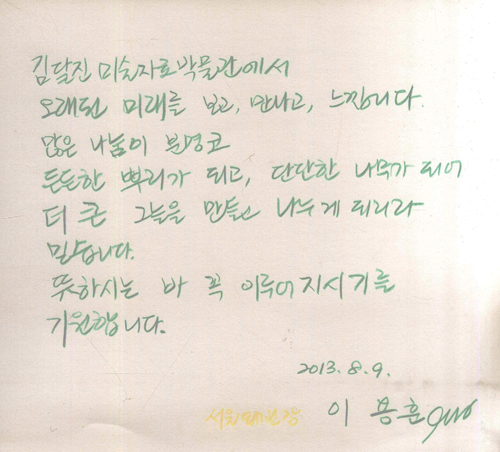 김달진 미술자료박물관에서
오래된 미래를 보고, 만나고, 느낍니다.
많은 나눔이 분명코
든든한 뿌리가 되고, 단단한 나무가 되어
더 큰 그늘을 만들고 나누게 되리라
믿습니다.
뜻하시는 바 꼭 이루어지시기를
기원합니다.
2013. 8. 9.
이 용 훈